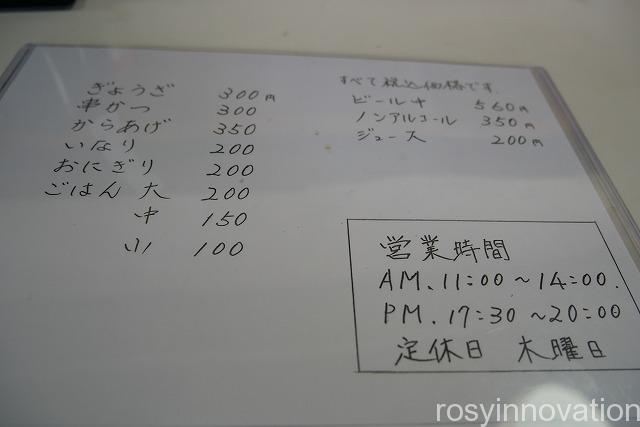 ぎょうざ 300円
串かつ 300
からあげ 350
いなり 200
おにぎり 200
ごはん 大 200
中 150
小 100
すべて税込価格です.
ビール中 560円
ノンアルコール 350円
ジュース 200円
営業時間
AM. 11:00~14:00.
PM. 17:30~20:00
定休日 木曜日
rosyinnovation